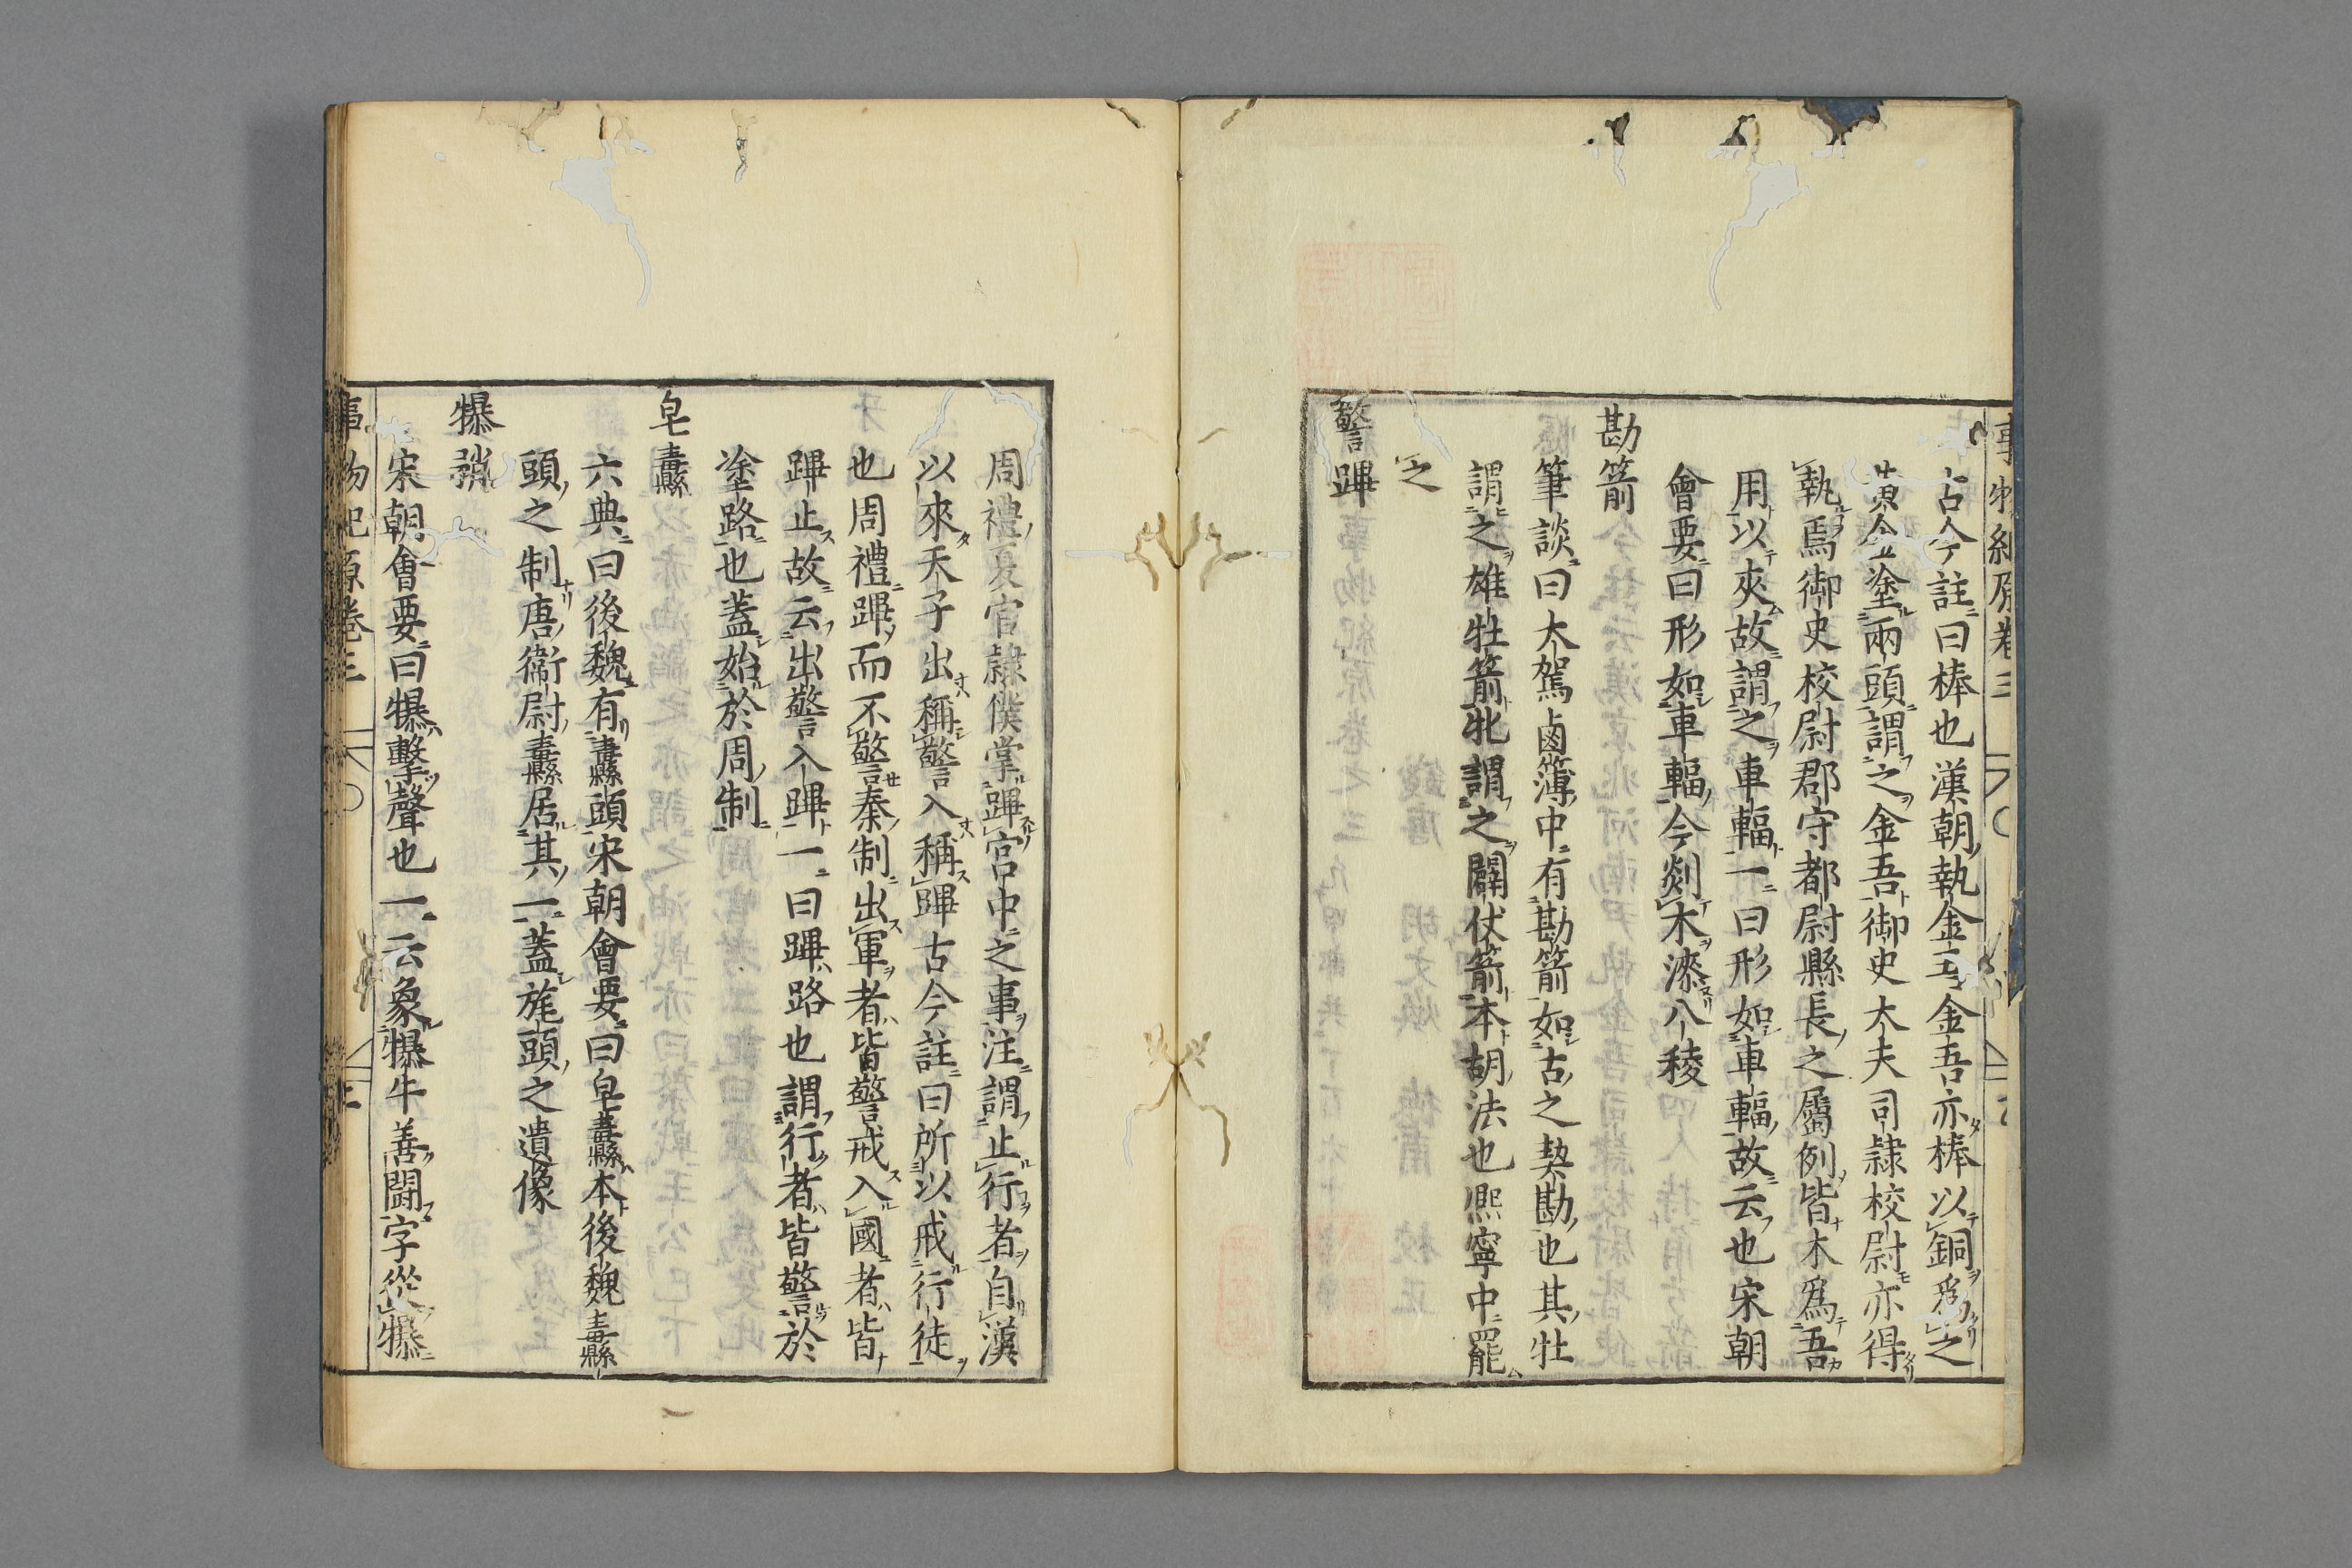 古今註曰棒也漢朝執金吾金吾亦棒以銅爲之
黄金塗兩頭謂之金吾御史大夫司隷校尉亦得
執焉御史校尉郡守都尉縣長之屬例皆木爲吾
用以夾故謂之車輻一曰形如車輻故云也宋朝
會要曰形如車輻今剡木漆八稜
勘箭
筆談曰大駕鹵簿中有勘箭如古之契勘也其牡
謂之雄牡箭牝謂之闢仗箭本胡法也熙寧中罷
之
警蹕
周禮夏官隷僕掌蹕宮中之事注謂止行者自漢
以來天子出稱警入稱蹕古今註曰所以戒行徒
也周禮蹕而不警秦制出軍者皆警戒入國者皆
蹕止故云出警入蹕一曰蹕路也謂行者皆警於
塗路也蓋始於周制
皂纛
六典曰後魏有纛頭宋朝會要曰皂纛本後魏纛
頭之制唐衞尉纛居其一蓋旄頭之遺像
犦矟
宋朝會要曰犦擊聲也一云象犦牛善鬪字從犦
事物紀原卷三